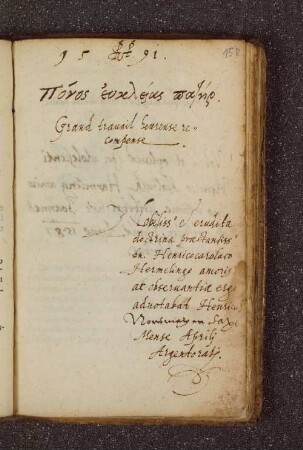 158
15 91.
Πόνος ἐυκλείας πατήρ.
Grand travail heureuse re-
compense
Nobiliss. & erudita
doctrina præstantiss.
Dn. Henricocarolaco
Hermelingo amoris
at observantiæ ergo
adnotabat
Mense Aprili
Argentorati.